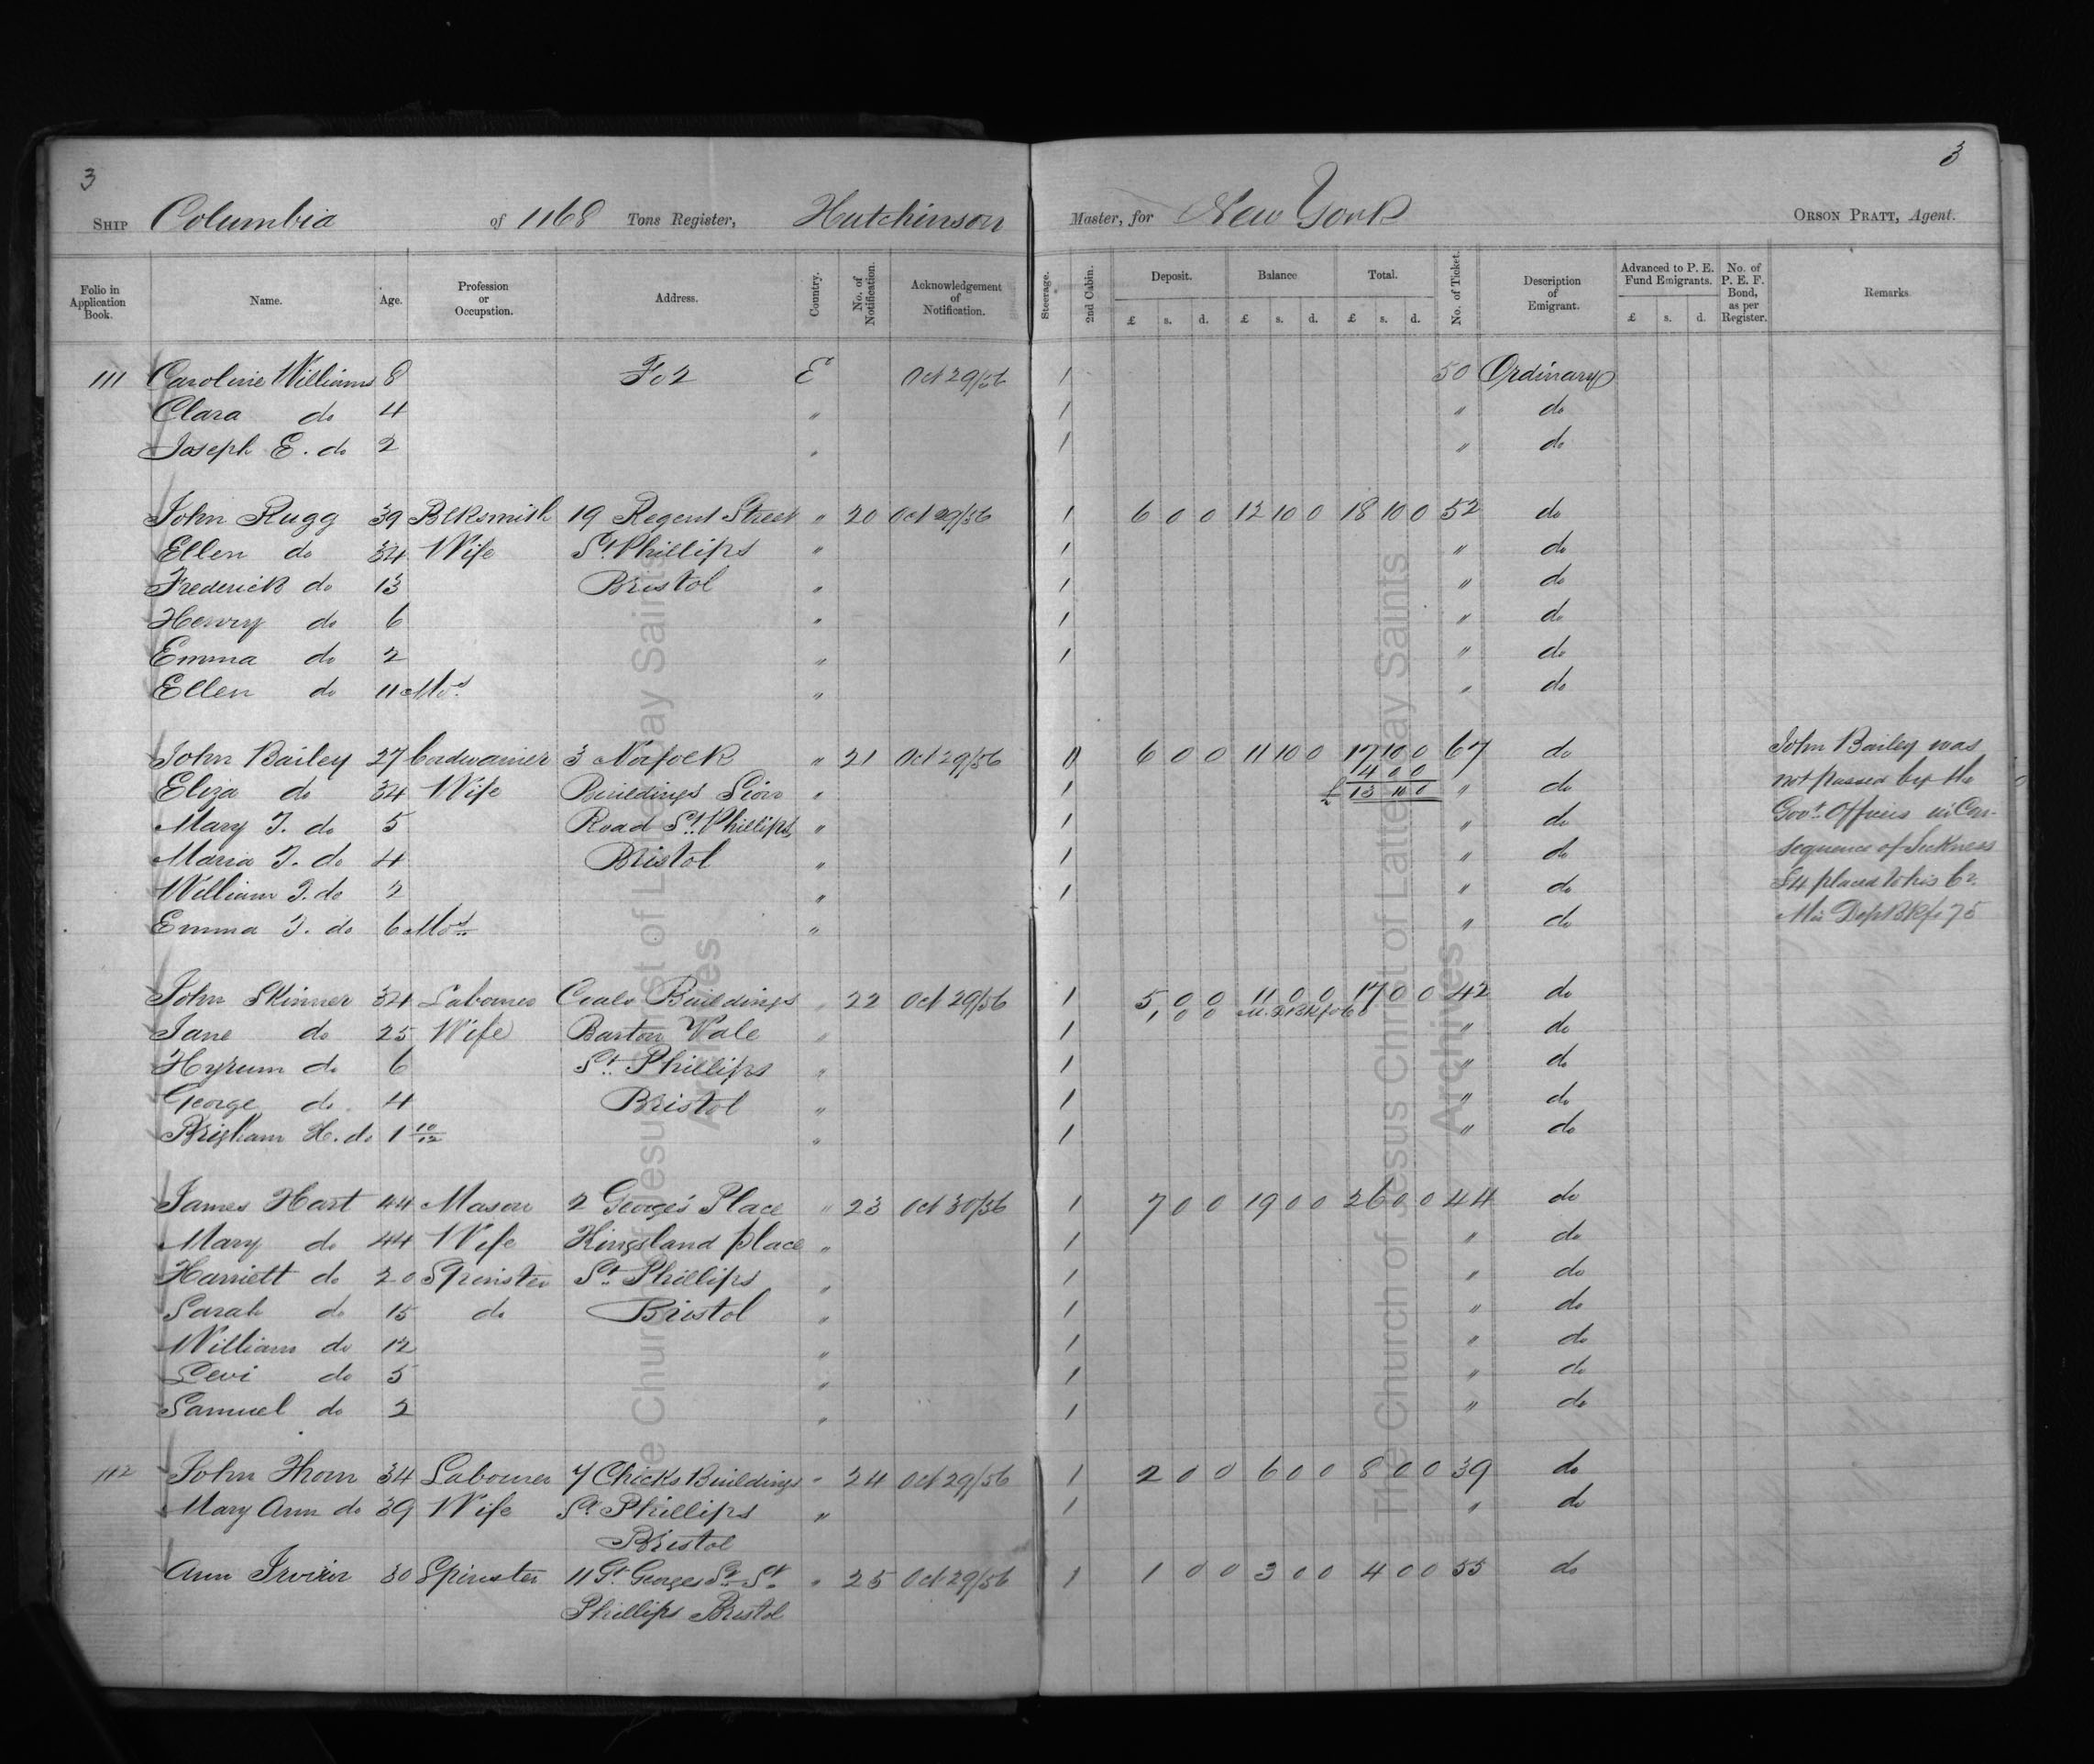 3
3
SHIP Columbia of 1168 Tons Register, Hutchinson Master, for New York ORSON PRATT, Agent.
Folio in Application Book. Name. Age. Profession or Occupation. Address. Country. No. of Notification. Acknowledgement of Notification. Steerage. 2nd Cabin. Deposit. £ s. d. Balance £ s. d. Total. £ s. d. No. of Ticket. Description of Emigrant. Advanced to P. E. Fund Emigrants. £ s. d. No. of P. E. F. Bond, as per Register. Remarks
111 Caroline Williams 8 Fo 2 E Oct 29/56 1 50 Ordinary
Clara do 4 " 1 " do
Joseph E. do 2 " 1 " do
John Rugg 39 Blksmith 19 Regent Street " 20 Oct 29/56 1 6 0 0 12 10 0 18 10 0 52 do
Ellen do 34 Wife St Phillips " 1 " do
Frederick do 13 Bristol " 1 " do
Henry do 6 " 1 " do
Emma do 2 " 1 " do
Ellen do 11 Mos " " do
John Bailey 27 Cordwainer 3 Norfolk " 21 Oct 29/56 11 6 0 0 11 10 0 17 10 0 67 do John Bailey was
4 0 0
Eliza do 34 Wife Buildings Sion " 1 £ 13 10 0 " do not passed by the
Mary J. do 5 Road St. Phillips, " 1 " do Govt. Officers in Con-
Maria J. do 4 Bristol " 1 " do sequence of Sickness
William J. do 2 " 1 " do £4 placed to his Cr.
Emma J. do 6 Mos " " do Mis Dep Bk fo 75
John Skinner 34 Labourer Coals Buildings " 22 Oct 29/56 1 5 0 0 11 0 0 17 0 0 42 do
1 0 0
Jane do 25 Wife Barton Vale " 1 " do
Hyrum do 6 St. Phillips " 1 " do
George do. 4 Bristol " 1 " do
Brigham H. do 1 10/12 " 1 " do
James Hart 44 Mason 2 George's Place " 23 Oct 30/56 1 7 0 0 19 0 0 26 0 0 44 do
Mary do 44 Wife Kingsland place " 1 " do
Harriett do 20 Spinster St. Phillips " 1 " do
Sarah do 15 do Bristol " 1 " do
William do 12 " 1 " do
Levi do 5 " 1 " do
Samuel do 2 " 1 " do
112 John Thorn 34 Labourer 7 Chicks Buildings " 24 Oct 29/56 1 2 0 0 6 0 0 8 0 0 39 do
Mary Ann do 39 Wife St Phillips " 1 " do
Bristol
Ann 30 Spinster 11 Gt. Georges St. St. " 25 Oct 29/56 1 1 0 0 3 0 0 4 0 0 55 do
Phillips Bristol
The Church of Jesus Christ of Latter-day Saints
Archives
The Church of Jesus Christ of Latter-day Saints
Archives